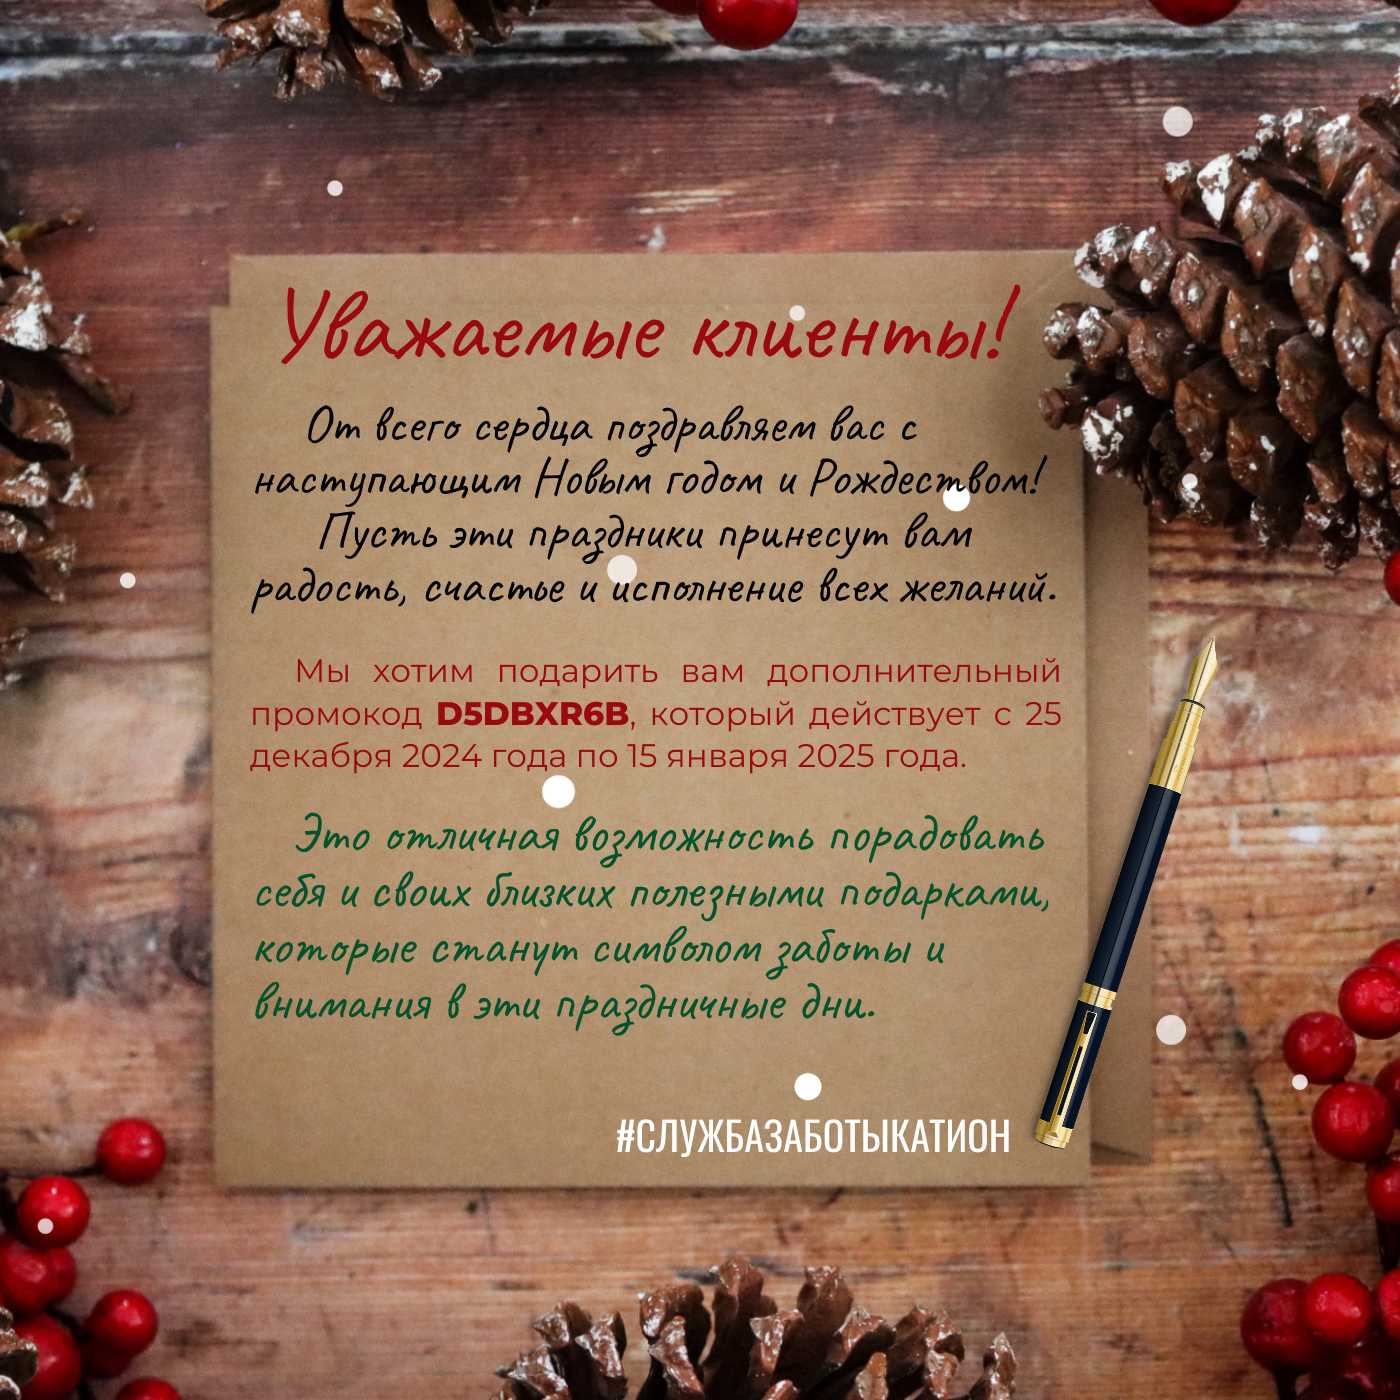 Уважаемые клиенты!
От всего сердца поздравляем вас с
наступающим Новым годом и Рождеством!
Пусть эти праздники принесут вам
радость, счастье и исполнение всех желаний.
Мы хотим подарить вам дополнительный
промокод D5DBXR6B, который действует с 25
декабря 2024 года по 15 января 2025 года.
Это отличная возможность порадовать
себя и своих близких полезными подарками,
которые станут символом заботы и
внимания в эти праздничные дни.
#СЛУЖБАЗАБОТЫКАТИОН